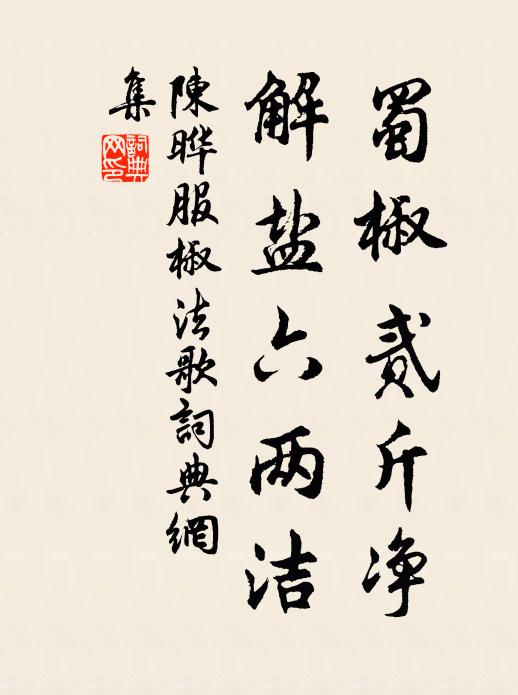 蜀椒贰斤净
解盐六两洁
陳晔服椒法歌詞典網
集
詞典网印